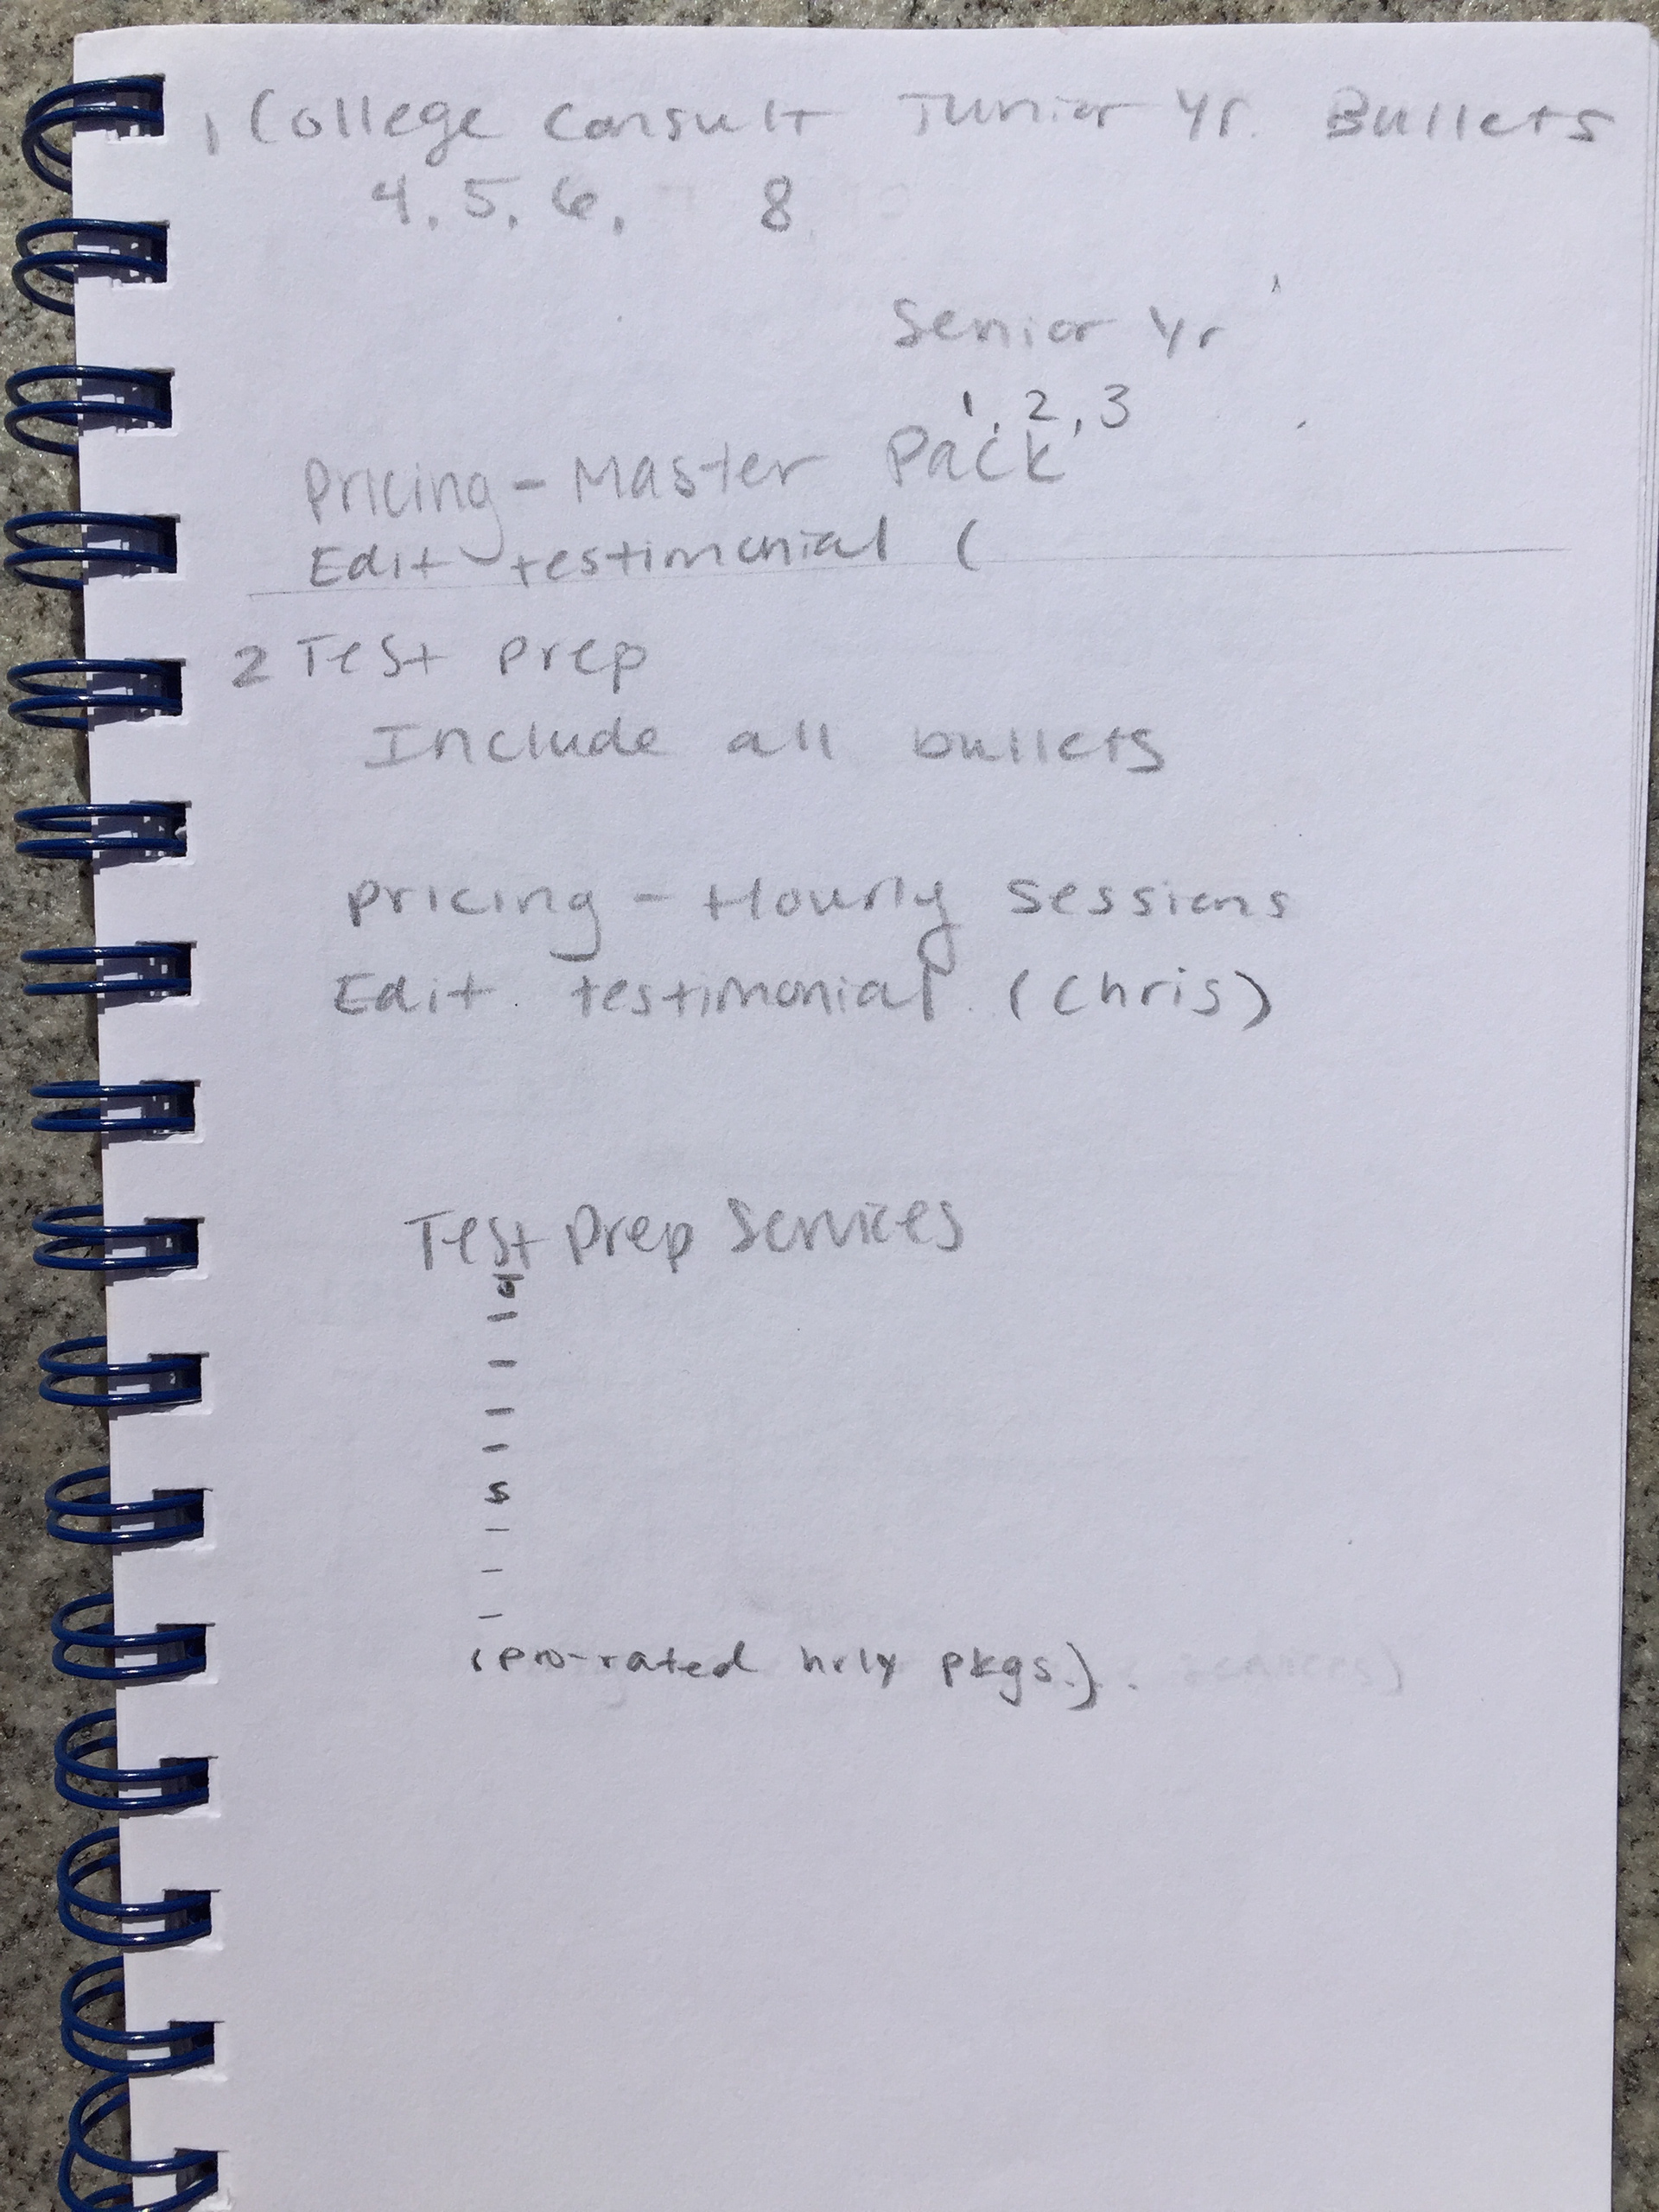 1 College Consult Junior Yr. Bullets
4, 5, 6, 8
Senior Yr
1, 2, 3
Pricing - Master Pack
Edit testimonial (
2 Test Prep
Include all bullets
Pricing - Hourly Sessions
Edit testimonial (Chris)
Test Prep Services
-
-
-
-
s
-
-
-
(pro-rated hrly pkgs.)